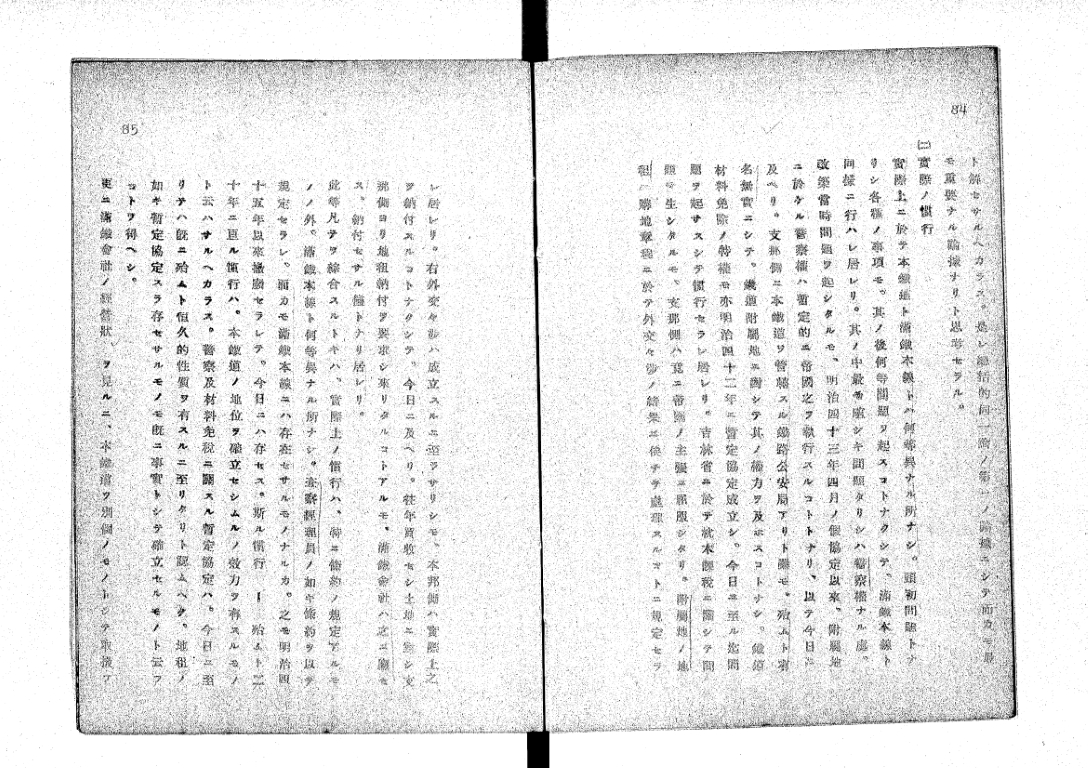 84
ト解セサルヘカラス。是レ總括的同一論ノ第一ノ論據ニシテ而カモ最
モ重要ナル論據ナリト思考セラル。
㈡實際ノ慣行
實際上ニ於テ本鐵道ト滿鐵本線トハ何等異ナル所ナシ。最初問題トナ
リシ各種ノ事項モ、其ノ後何等問題ヲ起スコトナクシテ、滿鐵本線ト
同樣ニ行ハレ居レリ。其ノ中最モ著シキ問題タリシハ警察權ナル處、
改築當時問題ヲ起シタルモ、明治四十三年四月ノ假協定以來、附屬地
ニ於ケル警察權ハ暫定的ニ帝國之ヲ執行スルコトトナリ、以テ今日ニ
及ヘリ。支那側ニ本鐵道ヲ管轄スル鐵路公安局アリト雖モ、殆ムト有
名無實ニシテ、鐵道附屬地ニ對シテ其ノ權力ヲ及ホスコトナシ。鐵道
材料免除ノ特權モ亦明治四十二年ニ暫定協定成立シ、今日ニ至ル迄問
題ヲ起サスシテ慣行セラレ居レリ。吉林省ニ於テ枕木課稅ニ關シテ問
題ヲ生シタルモ、支那側ハ竟ニ帝國ノ主張ニ屈服シタリ。附屬地ノ地
租ハ購地章程ニ於テ外交々涉ノ結果ニ依テ處理スルコトニ規定セラ
85
レ居レリ。右外交々涉ハ成立スルニ至ラサリシモ、本邦側ハ實際上之
ヲ納付スルコトナクシテ、今日ニ及ヘリ。往年買收セシ土地ニ對シ支
那側ヨリ地租納付ヲ要求シ來リタルコトアルモ、滿鐵會社ハ之ニ應セ
ス、納付セサル儘トナリ居レリ。
此等凡テヲ綜合スルトキハ、實際上ノ慣行ハ、特ニ條約ノ規定アルモ
ノノ外、滿鐵本線ト何等異ナル所ナシ。支察經理員ノ如キ條約ヲ以テ
規定セラレ、而カモ滿鐵本線ニハ存在セサルモノナルカ、之モ明治四
十五年以來撤廢セラレテ、今日ニハ存セス。斯ル慣行ー殆ムト二
十年ニ亘ル慣行ハ、本鐵道ノ地位ヲ確立セシムルノ效力ヲ有スルモノ
ト云ハサルヘカラス。警察及材料免稅ニ關スル暫定協定ハ、今日ニ至
リテハ既ニ殆ムト恒久的性質ヲ有スルニ至リタリト認ムヘク、地租ノ
如キ暫定協定スラ存セサルモノモ既ニ事實トシテ確立セルモノト云フ
コトヲ得ヘシ。
更ニ滿鐵會社ノ經營狀 ヲ見ルニ、本鐵道ヲ別個ノモノトシテ取扱フ